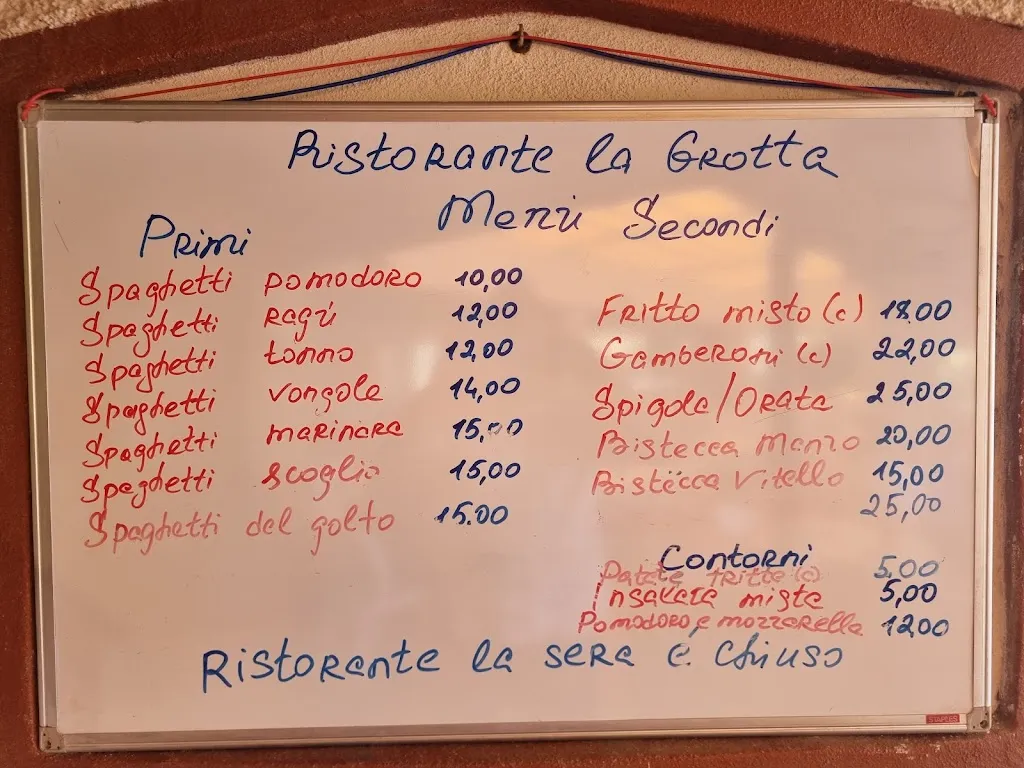 Ristorante la Grotta
Menù
Primi
Spaghetti pomodoro 10,00
Spaghetti ragù 12,00
Spaghetti tonno 12,00
Spaghetti vongole 14,00
Spaghetti marinara 15,00
Spaghetti scoglio 15,00
Spaghetti del golfo 15.00
Secondi
Fritto misto (c) 18.00
Gamberoni (c) 22,00
Spigola/Orata 25,00
Bistecca Manzo 20,00
Bistecca Vitello 15,00
25,00
Contorni
Patate fritte (c) 5.00
Insalata mista 5,00
Pomodoro e mozzarella 12,00
Ristorante la sera è chiuso
STAPLES